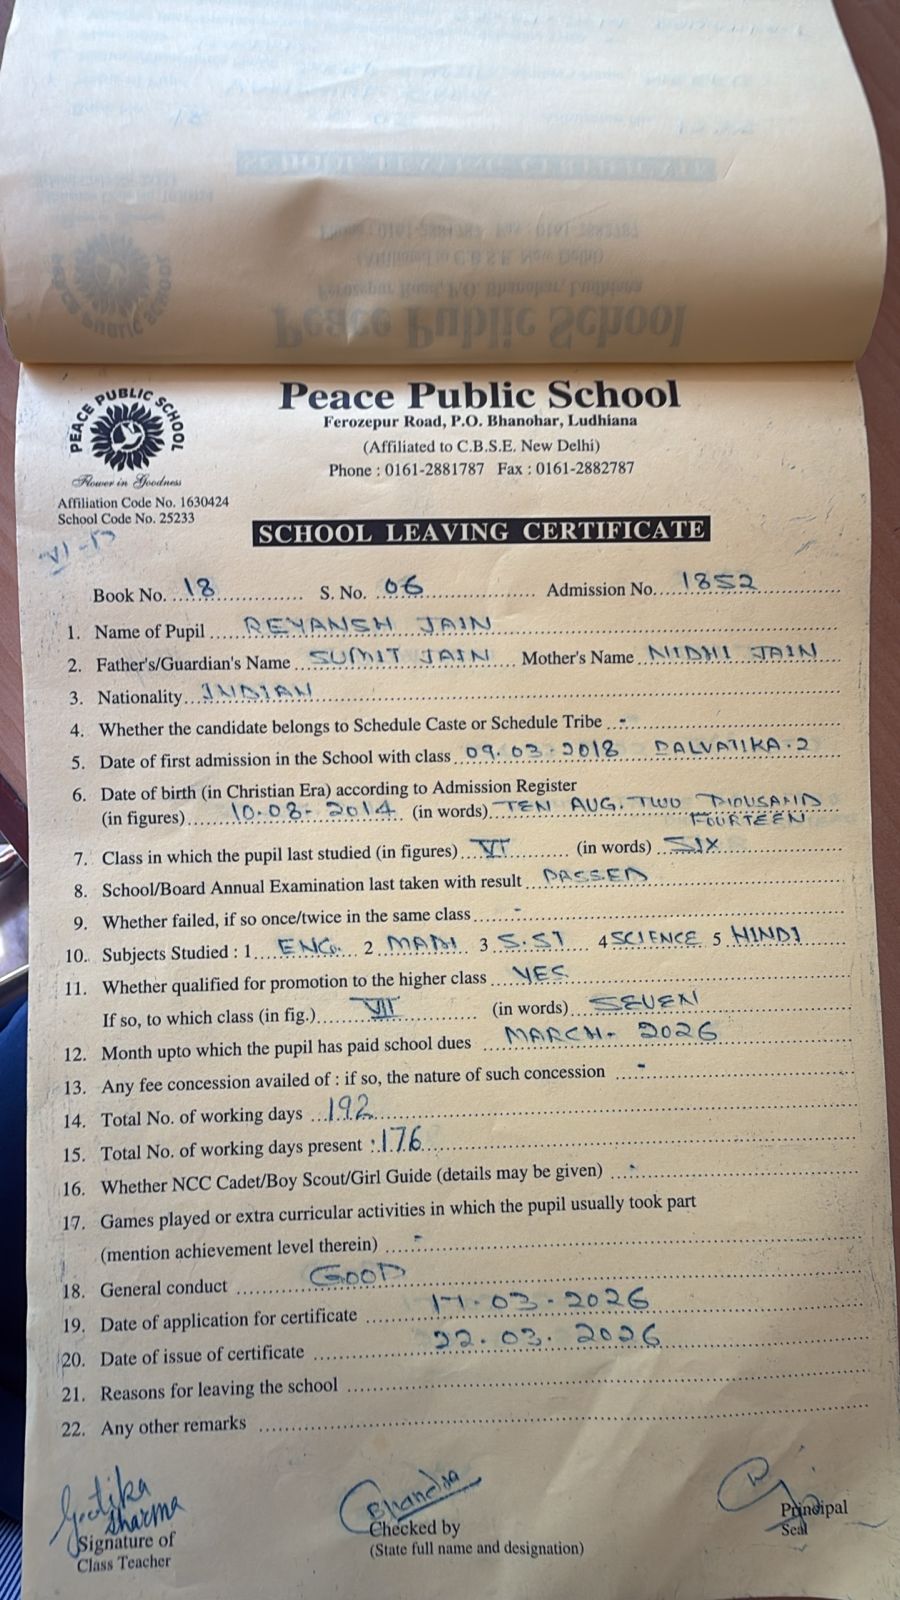 Peace Public School
Ferozepur Road, P.O. Bhanohar, Ludhiana
(Affiliated to C.B.S.E. New Delhi)
Phone : 0161-2881787 Fax : 0161-2882787
PEACE PUBLIC SCHOOL
Flower in Goodness
Affiliation Code No. 1630424
School Code No. 25233
SCHOOL LEAVING CERTIFICATE
Book No. 18 S. No. 06 Admission No. 1852
1. Name of Pupil REYANSH JAIN
2. Father's/Guardian's Name SUMIT JAIN Mother's Name NIDHI JAIN
3. Nationality INDIAN
4. Whether the candidate belongs to Schedule Caste or Schedule Tribe -
5. Date of first admission in the School with class 09.03.2018 BALVATIKA.2
6. Date of birth (in Christian Era) according to Admission Register
(in figures) 10.08.2014 (in words) TEN AUG. TWO THOUSAND
FOURTEEN
7. Class in which the pupil last studied (in figures) VI (in words) SIX
8. School/Board Annual Examination last taken with result PASSED
9. Whether failed, if so once/twice in the same class -
10. Subjects Studied : 1 ENG. 2 3 S.ST 4 SCIENCE 5 HINDI
11. Whether qualified for promotion to the higher class YES
If so, to which class (in fig.) VII (in words) SEVEN
12. Month upto which the pupil has paid school dues MARCH- 2026
13. Any fee concession availed of : if so, the nature of such concession -
14. Total No. of working days 192
15. Total No. of working days present : 176
16. Whether NCC Cadet/Boy Scout/Girl Guide (details may be given) -
17. Games played or extra curricular activities in which the pupil usually took part
(mention achievement level therein) -
18. General conduct GOOD
19. Date of application for certificate 17.03.2026
20. Date of issue of certificate 22.03.2026
21. Reasons for leaving the school
22. Any other remarks
Geetika
Sharma
Signature of
Class Teacher
Bhandra
Checked by
(State full name and designation)
Principal
Seal